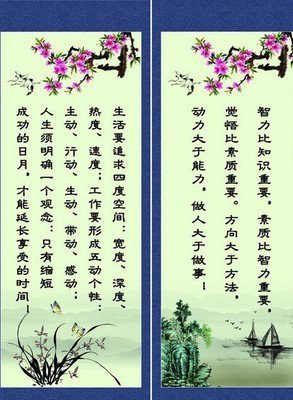 生活要追求四度空间：宽度、深度、
热度、速度；工作要形成五动个性：
主动、行动、生动、带动、感动；
人生须明确一个观念：只有缩短
成功的日月，才能延长享受的时间！
智力比知识重要，素质比智力重要，
觉悟比素质重要。方向大于方法，
动力大于能力，做人大于做事！